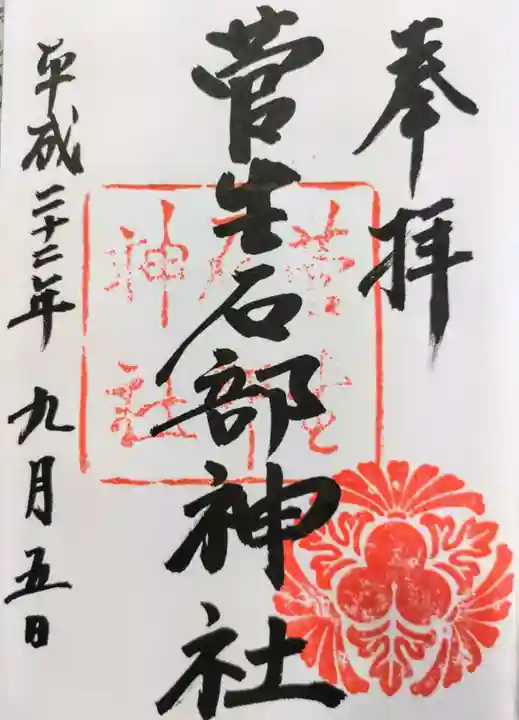 奉拝
菅生石部神社
平成二十二年九月五日
菅生石部神社